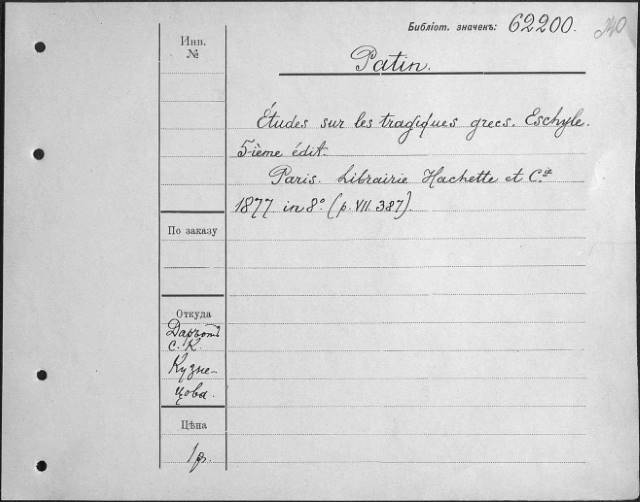 Библіот. значекъ: 62200.
Инв.
№
Patin.
Études sur les tragiques grecs. Eschyle.
5-ième édit.
Paris. Librairie Hachette et C.ie
1877 in 8°. (p. VII. 387).
По заказу
Откуда
Даръ отъ
С. К.
Кузне-
цова.
Цѣна
1 р.